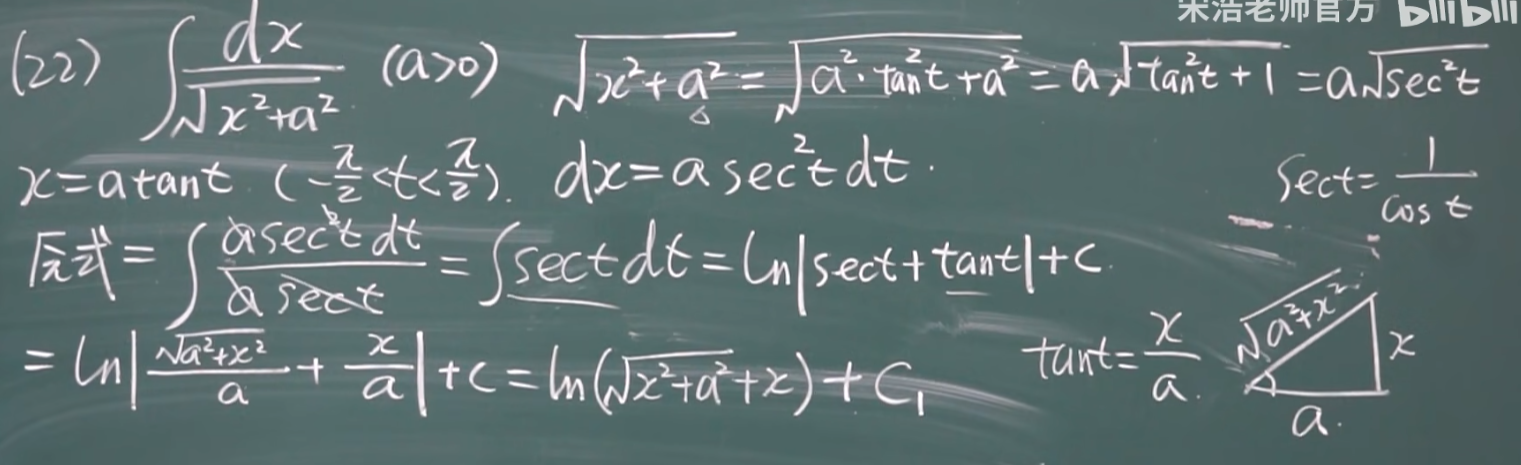 宋浩老师官方 bilibili
(22) ∫ dx/√(x²+a²) (a>0) √(x²+a²) = √(a²·tan²t+a²) = a√(tan²t+1) = a√(sec²t)
x=atant (-π/2<t<π/2). dx=a sec²t dt.
sect=1/cos t
原式= ∫ asec²t dt/a sect = ∫sect dt = ln|sect+tant|+c
= ln|√(a²+x²)/a + x/a|+c = ln(√(x²+a²)+x)+C₁
tant=x/a. √(a²+x²) x
a.